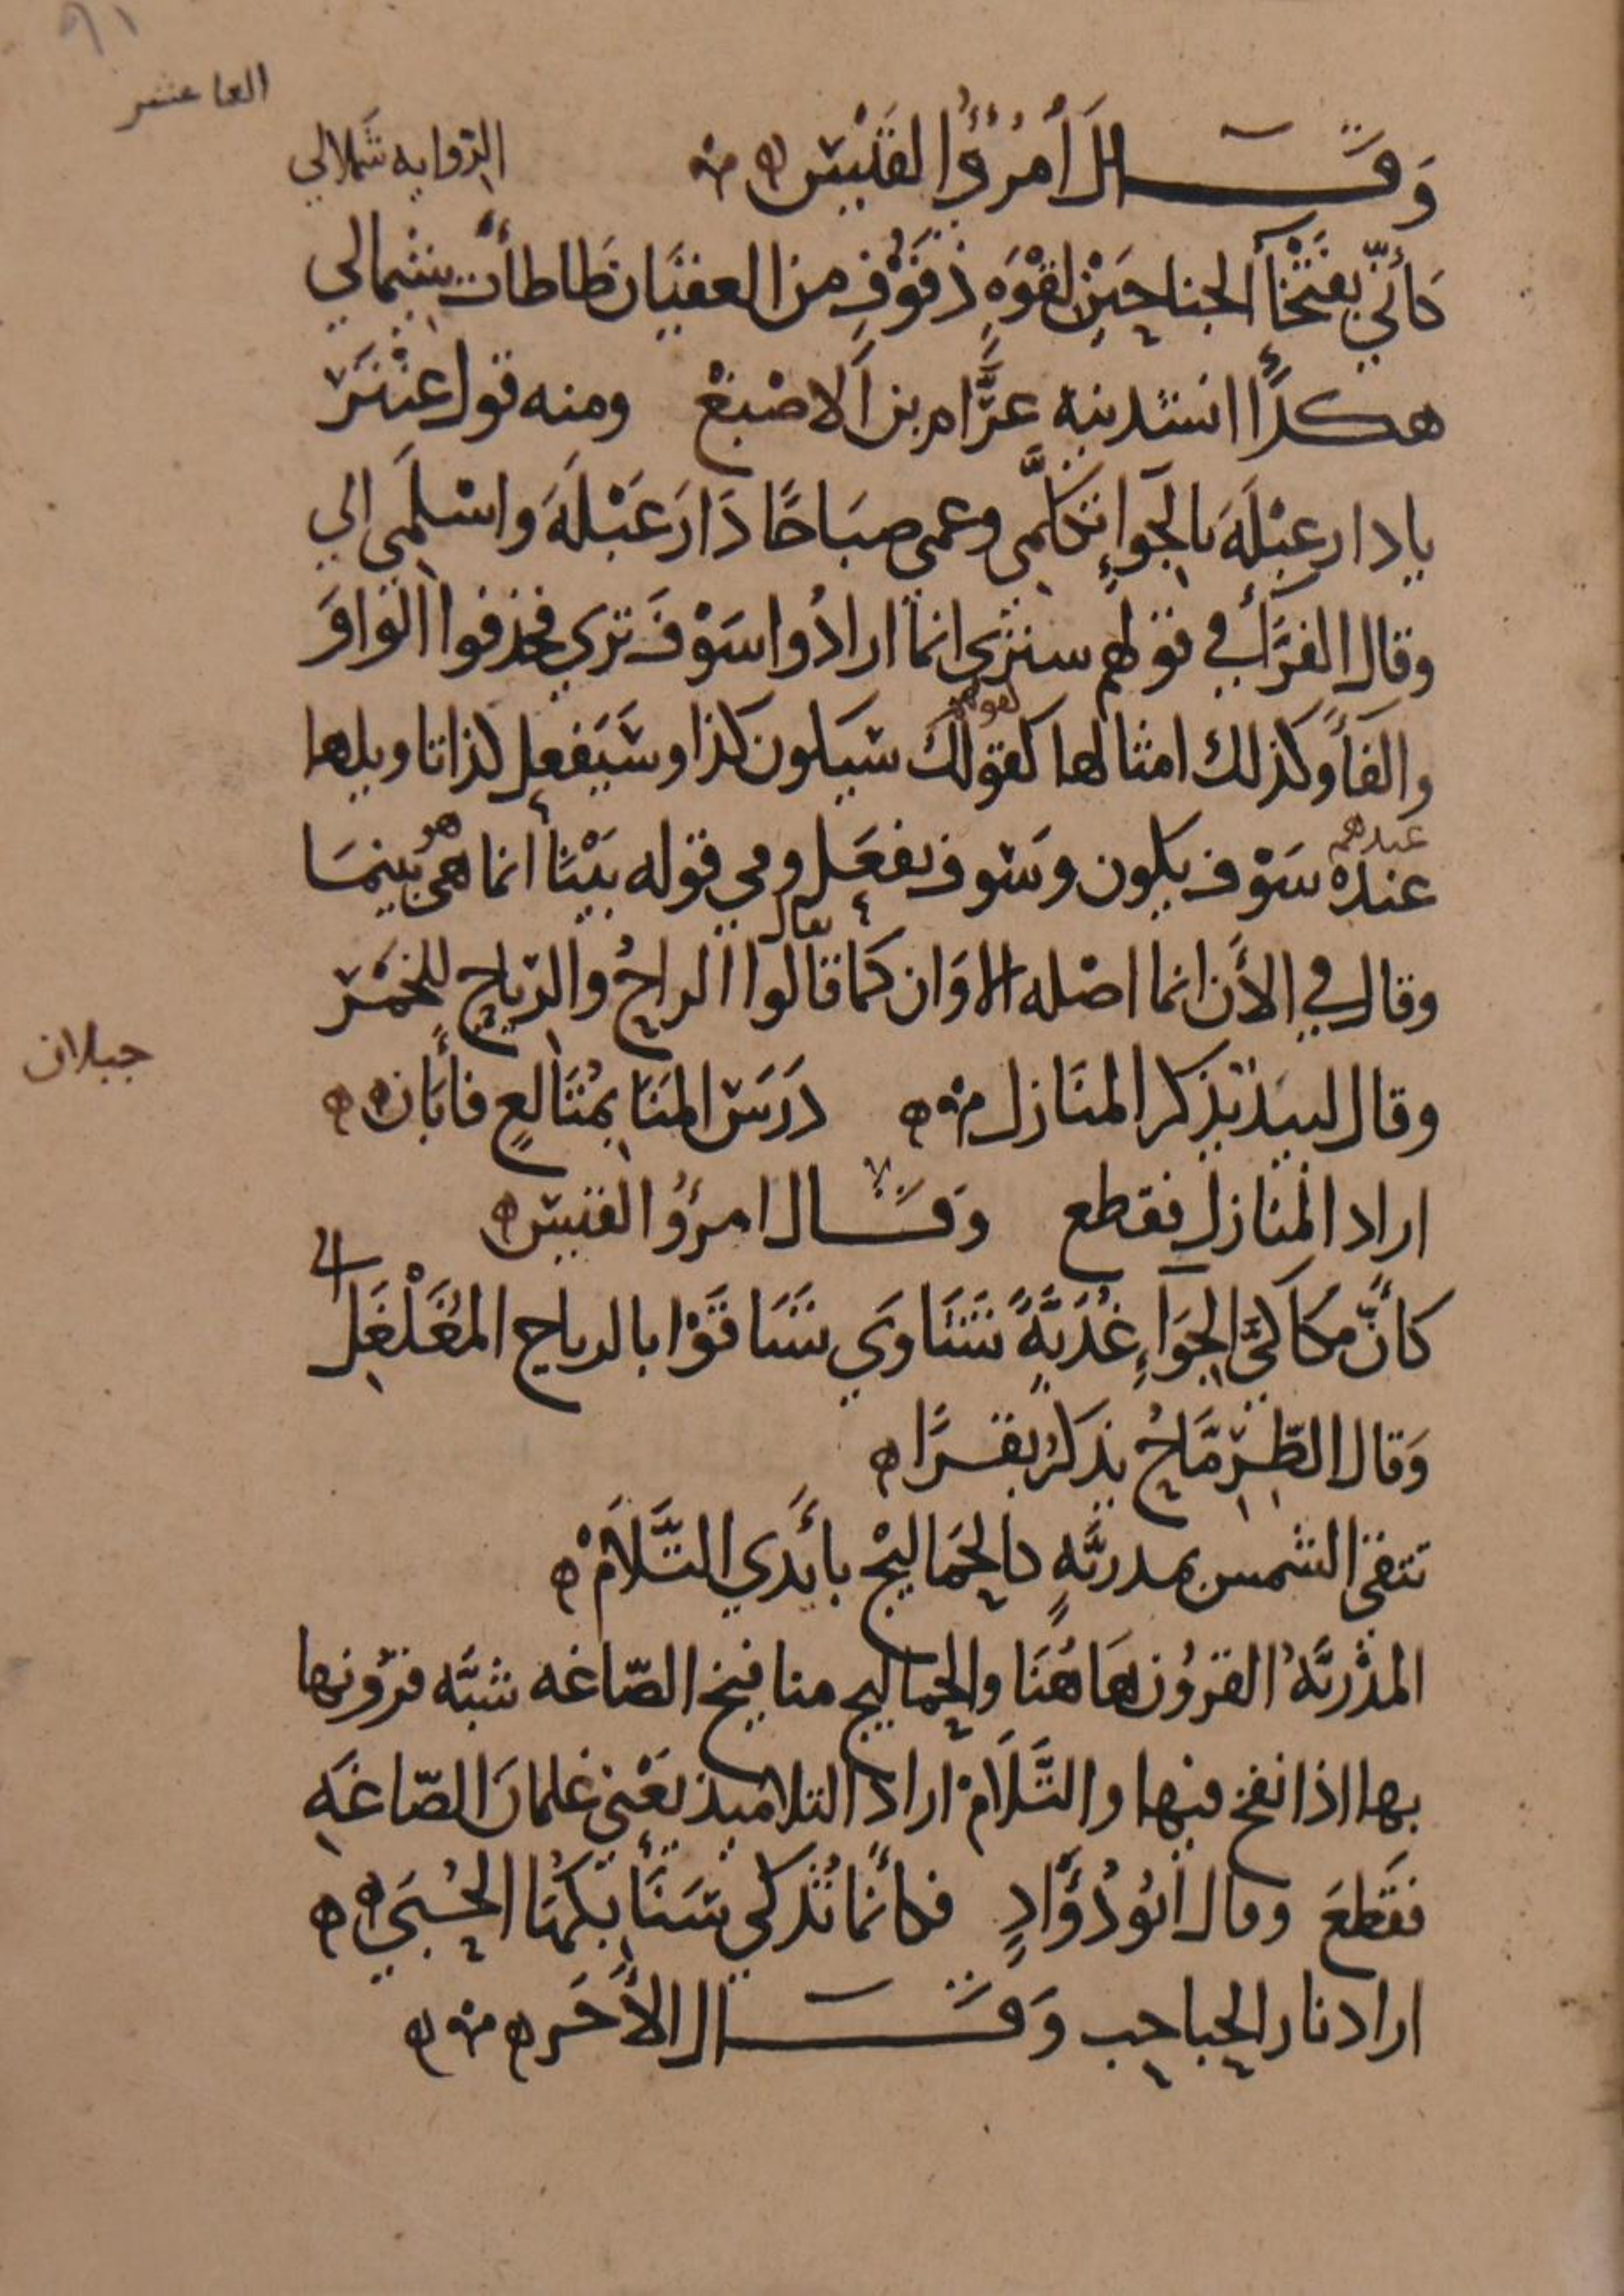 ٩١
العاشر
وَقَالَ أمْرُؤُ القَيْسِ
الرواية شملالي
كأنّي بفَتْخَآ الجناحَيْنِ لَقْوَةٍ دَفُوْفٍ من العقبَان طَاطَأتُ شِيمالي
هكذا انشدنيه عَرَّام بن الاصْبَغْ ومنه قول عنْتَرَ
يا دار عَبْلَةَ بالجَوآءِ تَكلّمي وعمي صبَاحًا دَارَ عَبْلَةَ واسْلَمِي الي
وقال الفرَّآء في قولهم سنرى انما ارادُوا سَوْفَ تري فحذفوا الوَاوَ
والفآءَ وكذلك امثالها كقولك سَيَكون كذا وسَيَفعل كذا تاويلها
لقولهم
عندهُ سَوْف يكون وسَوف يفعَل وفي قوله بَيْنَا انما هي بَينمَا
عندهم
هو
وقال في الأَن انما اصْله الاوَان كما قالوا الراحُ والرّيَاح للخمْر
يقال
وقال لبيد يَذكر المنَازل دَرَسَ المَنَا بمُتَالعٍ فأبَان
جبلان
اراد المنازل فقطع وَقَال امرؤُ القيس
كأنَّ مَكاكيَّ الجِوَآءِ غُدَيَّةً نَشَاوَي تَسَاقَوْا بالرياح المُفَلْفَلِ
الي
وَقال الطِّرِمَّاحُ يذكرُ بقَرًا
تتقي الشمس بمدريّةٍ كالحَمَاليْج بأيْدي التَّلَامْ
المدْرِيّةُ القرُون هَاهُنَا والحماليج منافيخ الصّاغه شبَّه قرُونها
بها اذا نفخ فيها والتَّلَامْ اراد التلاميذ يَعْني غلمان الصّاغَه
فقَطعَ وقال أبُو دُؤَادٍ فكأنما تُذكي سَنَابكهَا الحُبَي
اراد نار الحباحب وَقَال الأَخَر